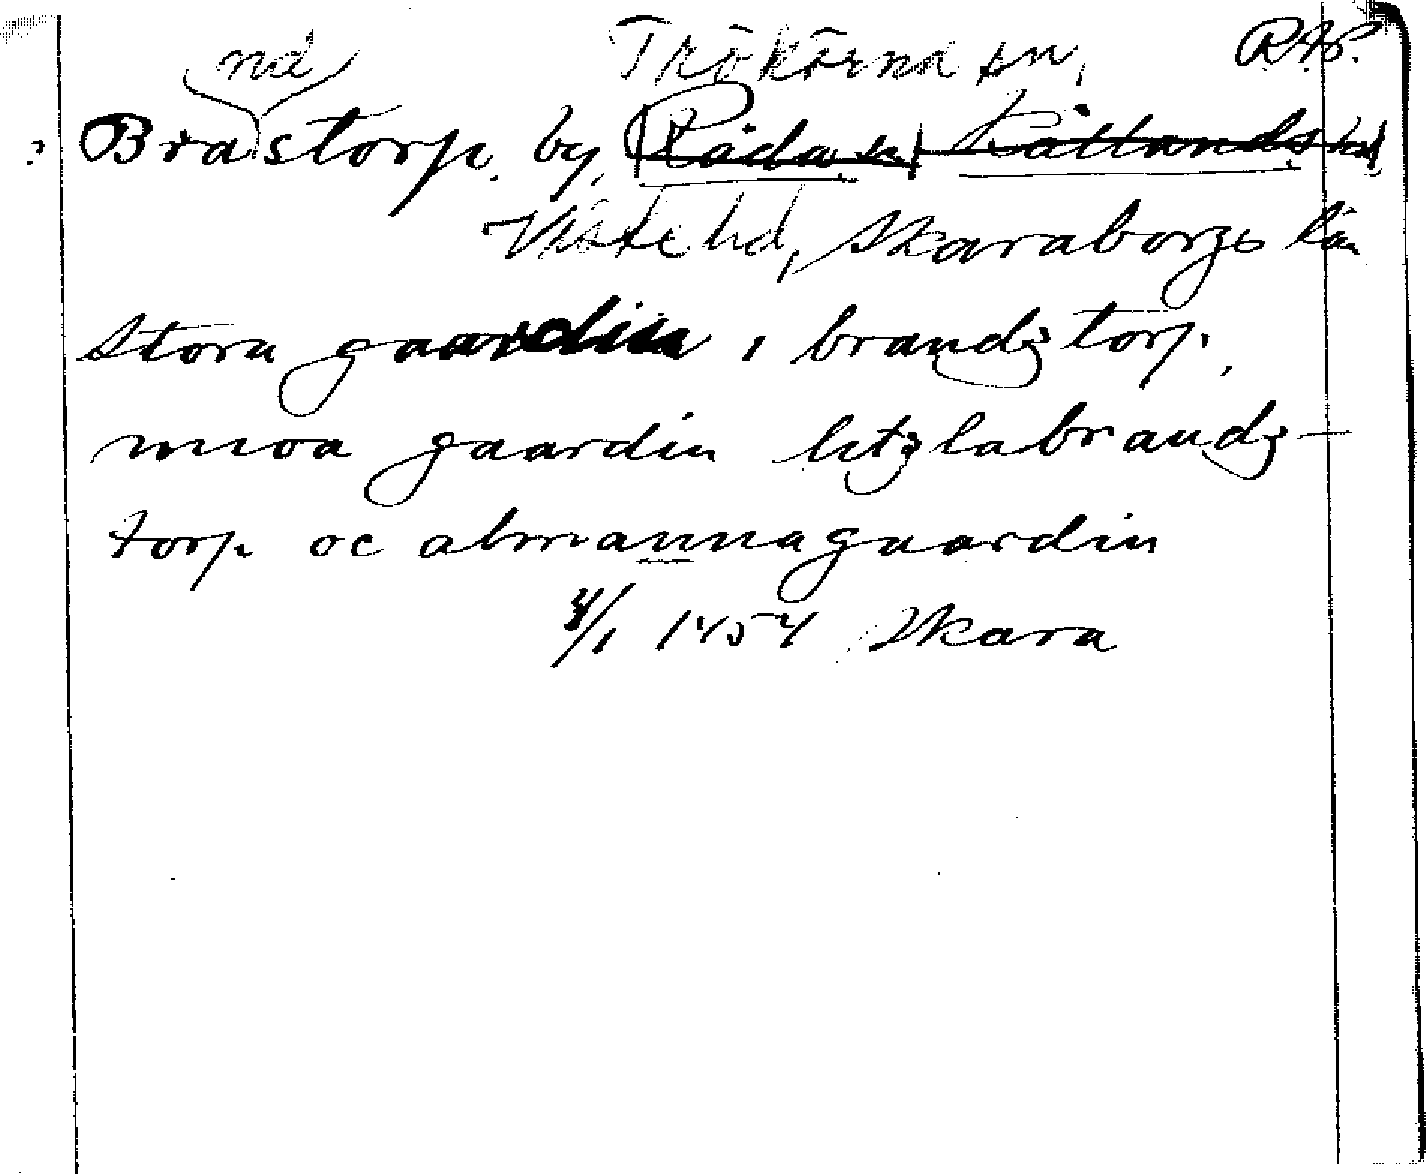 nd Trökörna sn, RAP.
? Brastorp. by, Råda sn Kållands hd
Viste hd, Skaraborgs län
Stora gaardin i brandz torp,
mioa gaardin litzlabrandz-
torp oc almannagaardin
4/1 1454 Skara